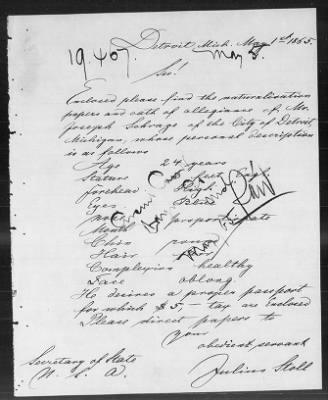 Detroit, Mich. May 1st 1865.
19407
May 3.
Sir!
Enclosed please find the naturalisation
papers and oath of allegiance of Mr.
Joseph of the City of Detroit
Michigan, whose personal description
is as follows
Age 24 years
Stature feet
forehead High
Eyes Blue
Mouth proportionate
Chin round
Hair
Complexion healthy
Face oblong.
He desires a proper passport
for which $5, - tax are inclosed
Please direct papers to
your
obedient servant
Julius Stoll
Secretary of State
U. S. A.